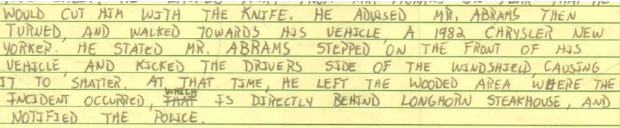 WOULD CUT HIM WITH THE KNIFE. HE ADVISED MR. ABRAMS THEN
TURNED, AND WALKED TOWARDS HIS VEHICLE, A 1982 CHRYSLER NEW
YORKER. HE STATED MR. ABRAMS STEPPED ON THE FRONT OF HIS
VEHICLE, AND KICKED THE DRIVERS SIDE OF THE WINDSHIELD, CAUSING
IT TO SHATTER. AT THAT TIME, HE LEFT THE WOODED AREA WHERE THE
INCIDENT OCCURRED, WHICH IS DIRECTLY BEHIND LONGHORN STEAKHOUSE, AND
NOTIFIED THE POLICE.